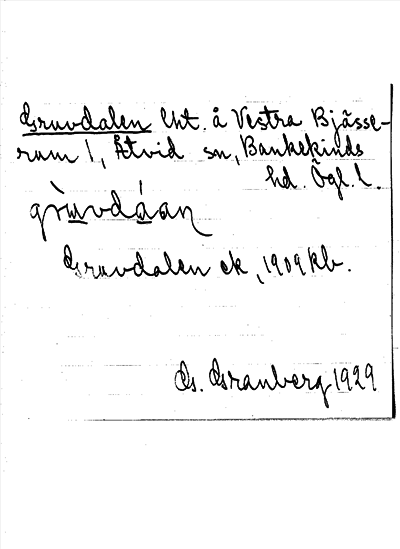 Gruvdalen lht. å Vestra Bjässe-
rum 1, Åtvid sn, Bankekinds
hd. Ögl. l.
grùvdáan
Gruvdalen ek, 1909 kb.
G. Granberg 1929